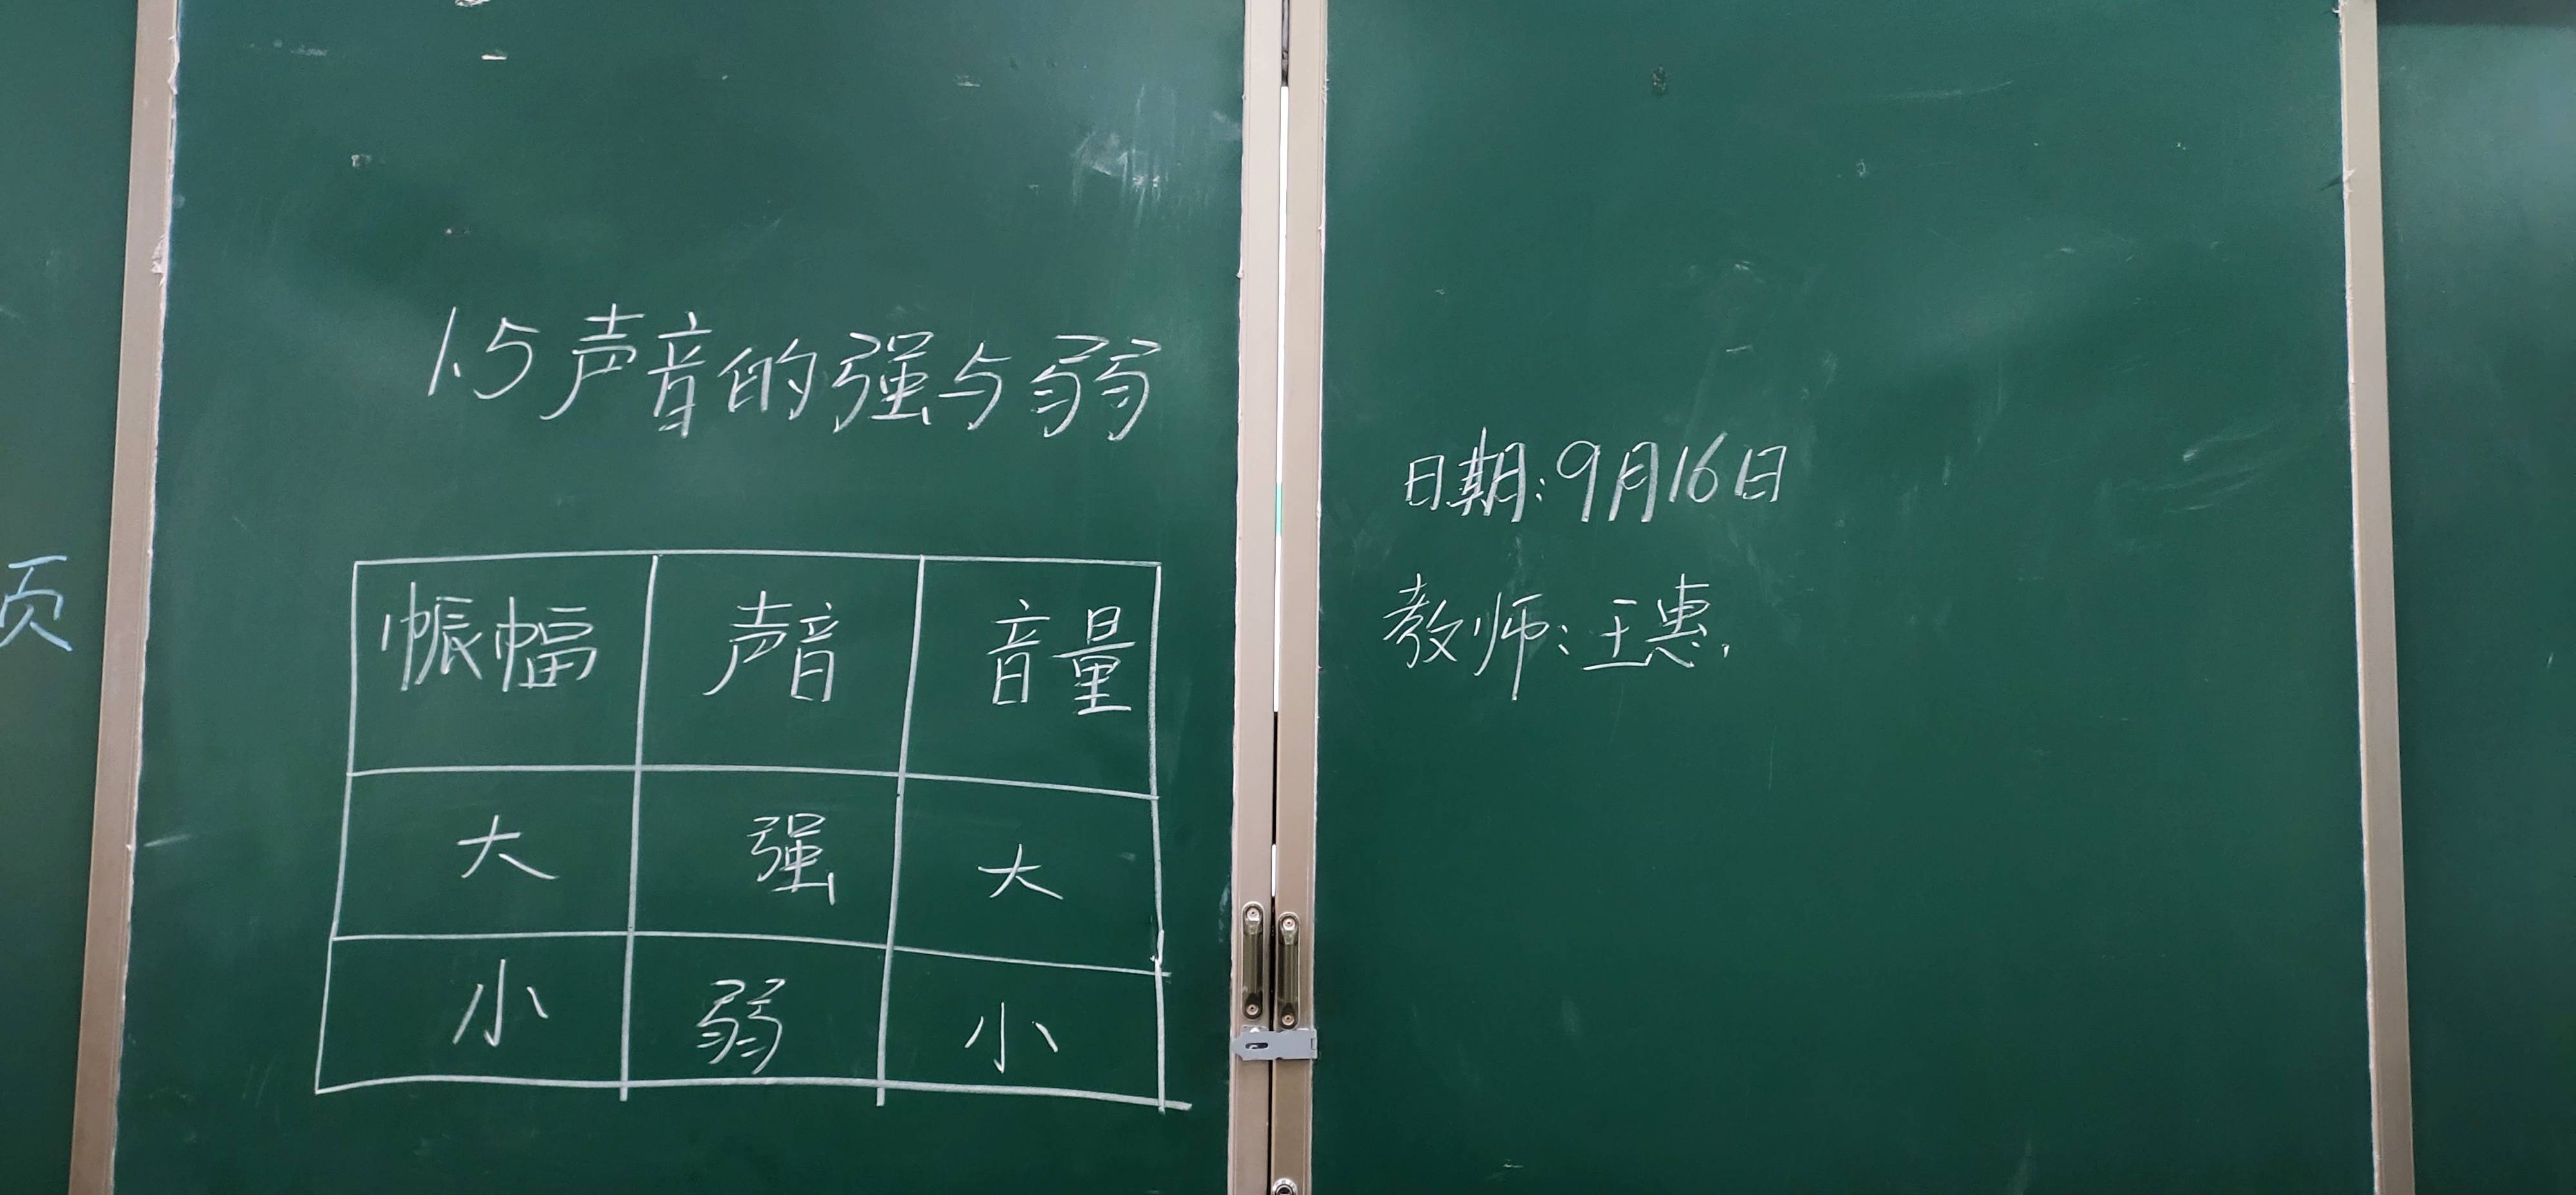 1.5声音的强与弱
振幅 声音 音量
大 强 大
小 弱 小
日期:9月16日
教师:王惠.
页